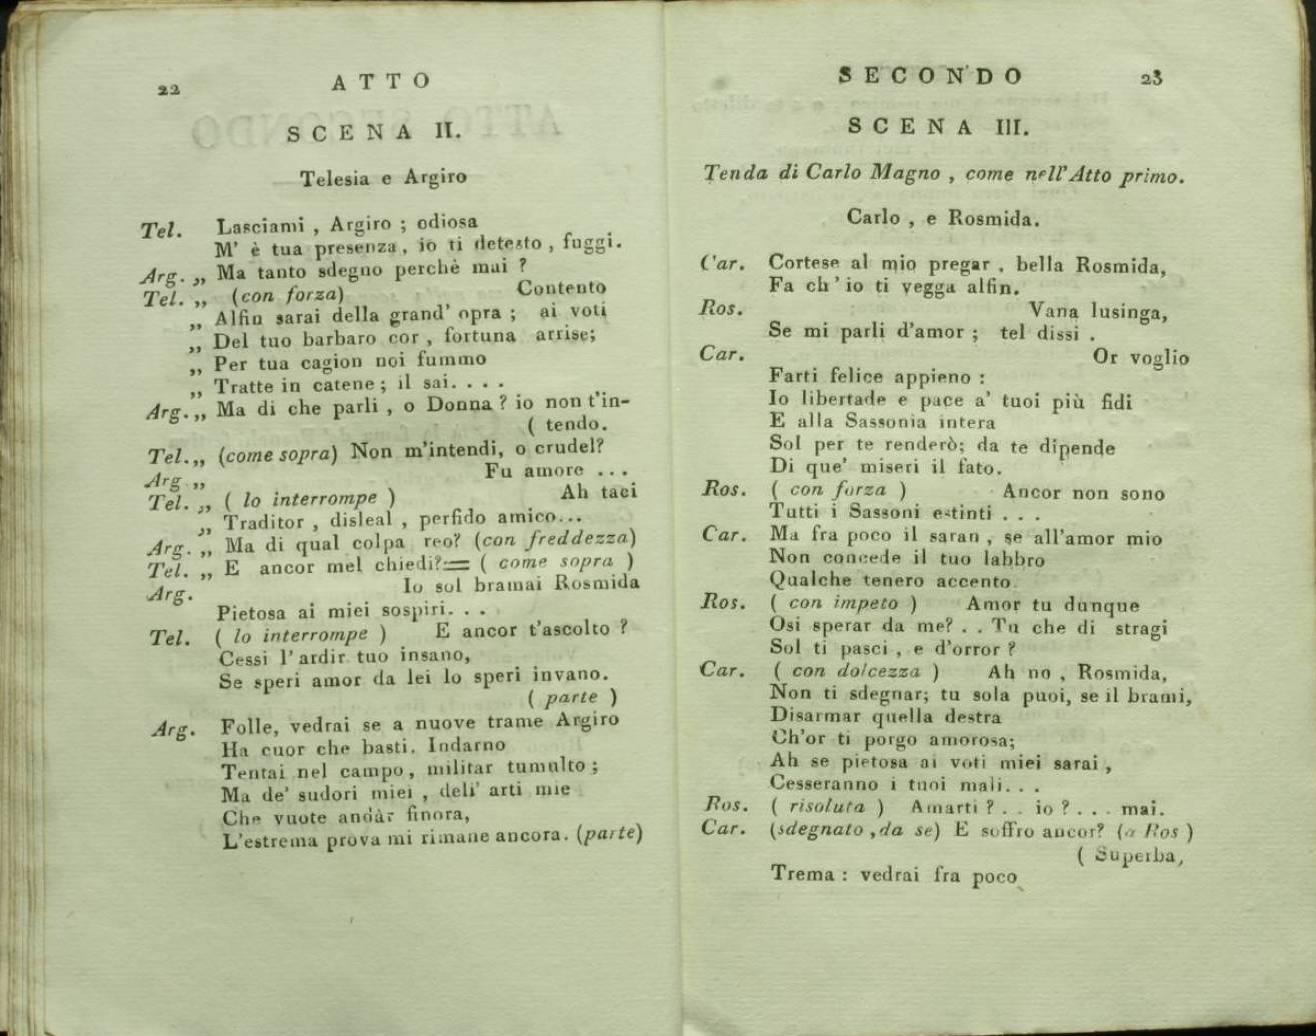 22 ATTO
SCENA II.
Telesia e Argiro
Tel. Lasciami , Argiro ; odiosa
M' è tua presenza, io ti detesto , fuggi.
Arg. „ Ma tanto sdegno perchè mai ?
Tel. „ (con forza) Contento
„ Alfin sarai della grand' opra ; ai voti
„ Del tuo barbaro cor , fortuna arrise;
„ Per tua cagion noi fummo
„ Tratte in catene ; il sai. . . .
Arg. „ Ma di che parli , o Donna ? io non t'in-
( tendo.
Tel. „ (come sopra) Non m'intendi, o crudel?
Arg „ Fu amore ...
Tel. „ ( lo interrompe ) Ah taci
„ Traditor , disleal , perfido amico...
Arg. „ Ma di qual colpa reo? (con freddezza)
Tel. „ E ancor mel chiedi?= ( come sopra )
Arg. Io sol bramai Rosmida
Pietosa ai miei sospiri. . .
Tel. ( lo interrompe ) E ancor t'ascolto ?
Cessi l'ardir tuo insano,
Se speri amor da lei lo speri invano.
( parte )
Arg. Folle, vedrai se a nuove trame Argiro
Ha cuor che basti. Indarno
Tentai nel campo, militar tumulto ;
Ma de' sudori miei , dell' arti mie
Che vuote andàr finora,
L'estrema prova mi rimane ancora. (parte)
SECONDO 23
SCENA III.
Tenda di Carlo Magno , come nell'Atto primo.
Carlo , e Rosmida.
Car. Cortese al mio pregar , bella Rosmida,
Fa ch' io ti vegga alfin.
Ros. Vana lusinga,
Se mi parli d'amor ; tel dissi .
Car. Or voglio
Farti felice appieno :
Io libertade e pace a' tuoi più fidi
E alla Sassonia intera
Sol per te renderò; da te dipende
Di que' miseri il fato.
Ros. ( con forza ) Ancor non sono
Tutti i Sassoni estinti . . .
Car. Ma fra poco il saran , se all'amor mio
Non concede il tuo labbro
Qualche tenero accento.
Ros. ( con impeto ) Amor tu dunque
Osi sperar da me? . . Tu che di stragi
Sol ti pasci , e d'orror ?
Car. ( con dolcezza ) Ah no , Rosmida,
Non ti sdegnar; tu sola puoi, se il brami,
Disarmar quella destra
Ch'or ti porgo amorosa;
Ah se pietosa ai voti miei sarai ,
Cesseranno i tuoi mali. . .
Ros. ( risoluta ) Amarti ? . . io ? . . . mai.
Car. (sdegnato , da se) E soffro ancor? (a Ros )
( Superba,
Trema : vedrai fra poco